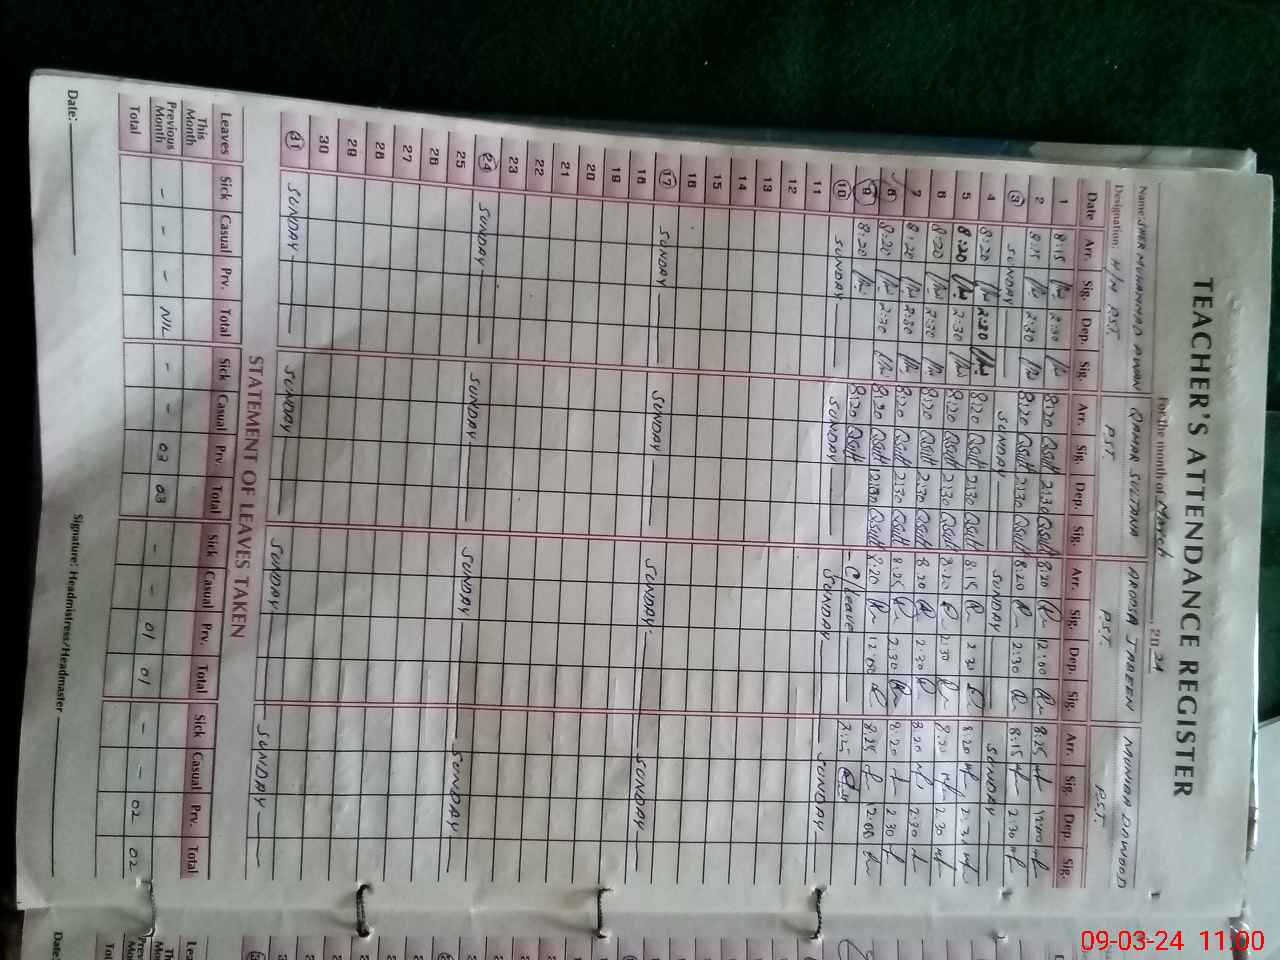 TEACHER'S ATTENDANCE REGISTER
For the month of March, 2024
Name: SHER MUHAMMAD AWAN QAMAR SULTANA AROOSA JABEEN MUNIBA DAWOOD
Designation: H/M PST. PST. P.S.T. P.S.T
Date Arr. Sig. Dep. Sig. Arr. Sig. Dep. Sig. Arr. Sig. Dep. Sig. Arr. Sig. Dep. Sig.
1 8:15 2:30 8:20 QSult 2:30 QSult 8:20 12:00 8:25 12:00
2 8:15 2:30 8:20 QSult 2:30 QSult 8:20 2:30 8:15 2:30
3 SUNDAY SUNDAY SUNDAY SUNDAY
4 8:20 2:30 8:20 QSult 2:30 QSult 8:15 2:30 8:20 2:30
5 8:20 2:30 8:20 QSult 2:30 QSult 8:20 2:30 8:20 2:30
6 8:20 2:30 8:20 QSult 2:30 QSult 8:20 2:30 8:20 2:30
7 8:20 2:30 8:20 QSult 2:30 QSult 8:25 2:30 8:20 2:30
8 8:20 2:30 8:20 QSult 12:30 QSult 8:20 12:00 8:25 12:00
9 8:20 8:20 QSult C/Leave
10 SUNDAY SUNDAY SUNDAY SUNDAY
11
12
13
14
15
16
17 SUNDAY SUNDAY SUNDAY SUNDAY
18
19
20
21
22
23
24 SUNDAY SUNDAY SUNDAY SUNDAY
25
26
27
28
29
30
31 SUNDAY SUNDAY SUNDAY SUNDAY
STATEMENT OF LEAVES TAKEN
Leaves Sick Casual Prv. Total Sick Casual Prv. Total Sick Casual Prv. Total Sick Casual Prv. Total
This Month
Previous Month - - - NIL - - 03 03 - - 01 01 - - 02 02
Total
Date:
Signature: Headmistress/Headmaster
Date:
09-03-24 11:00